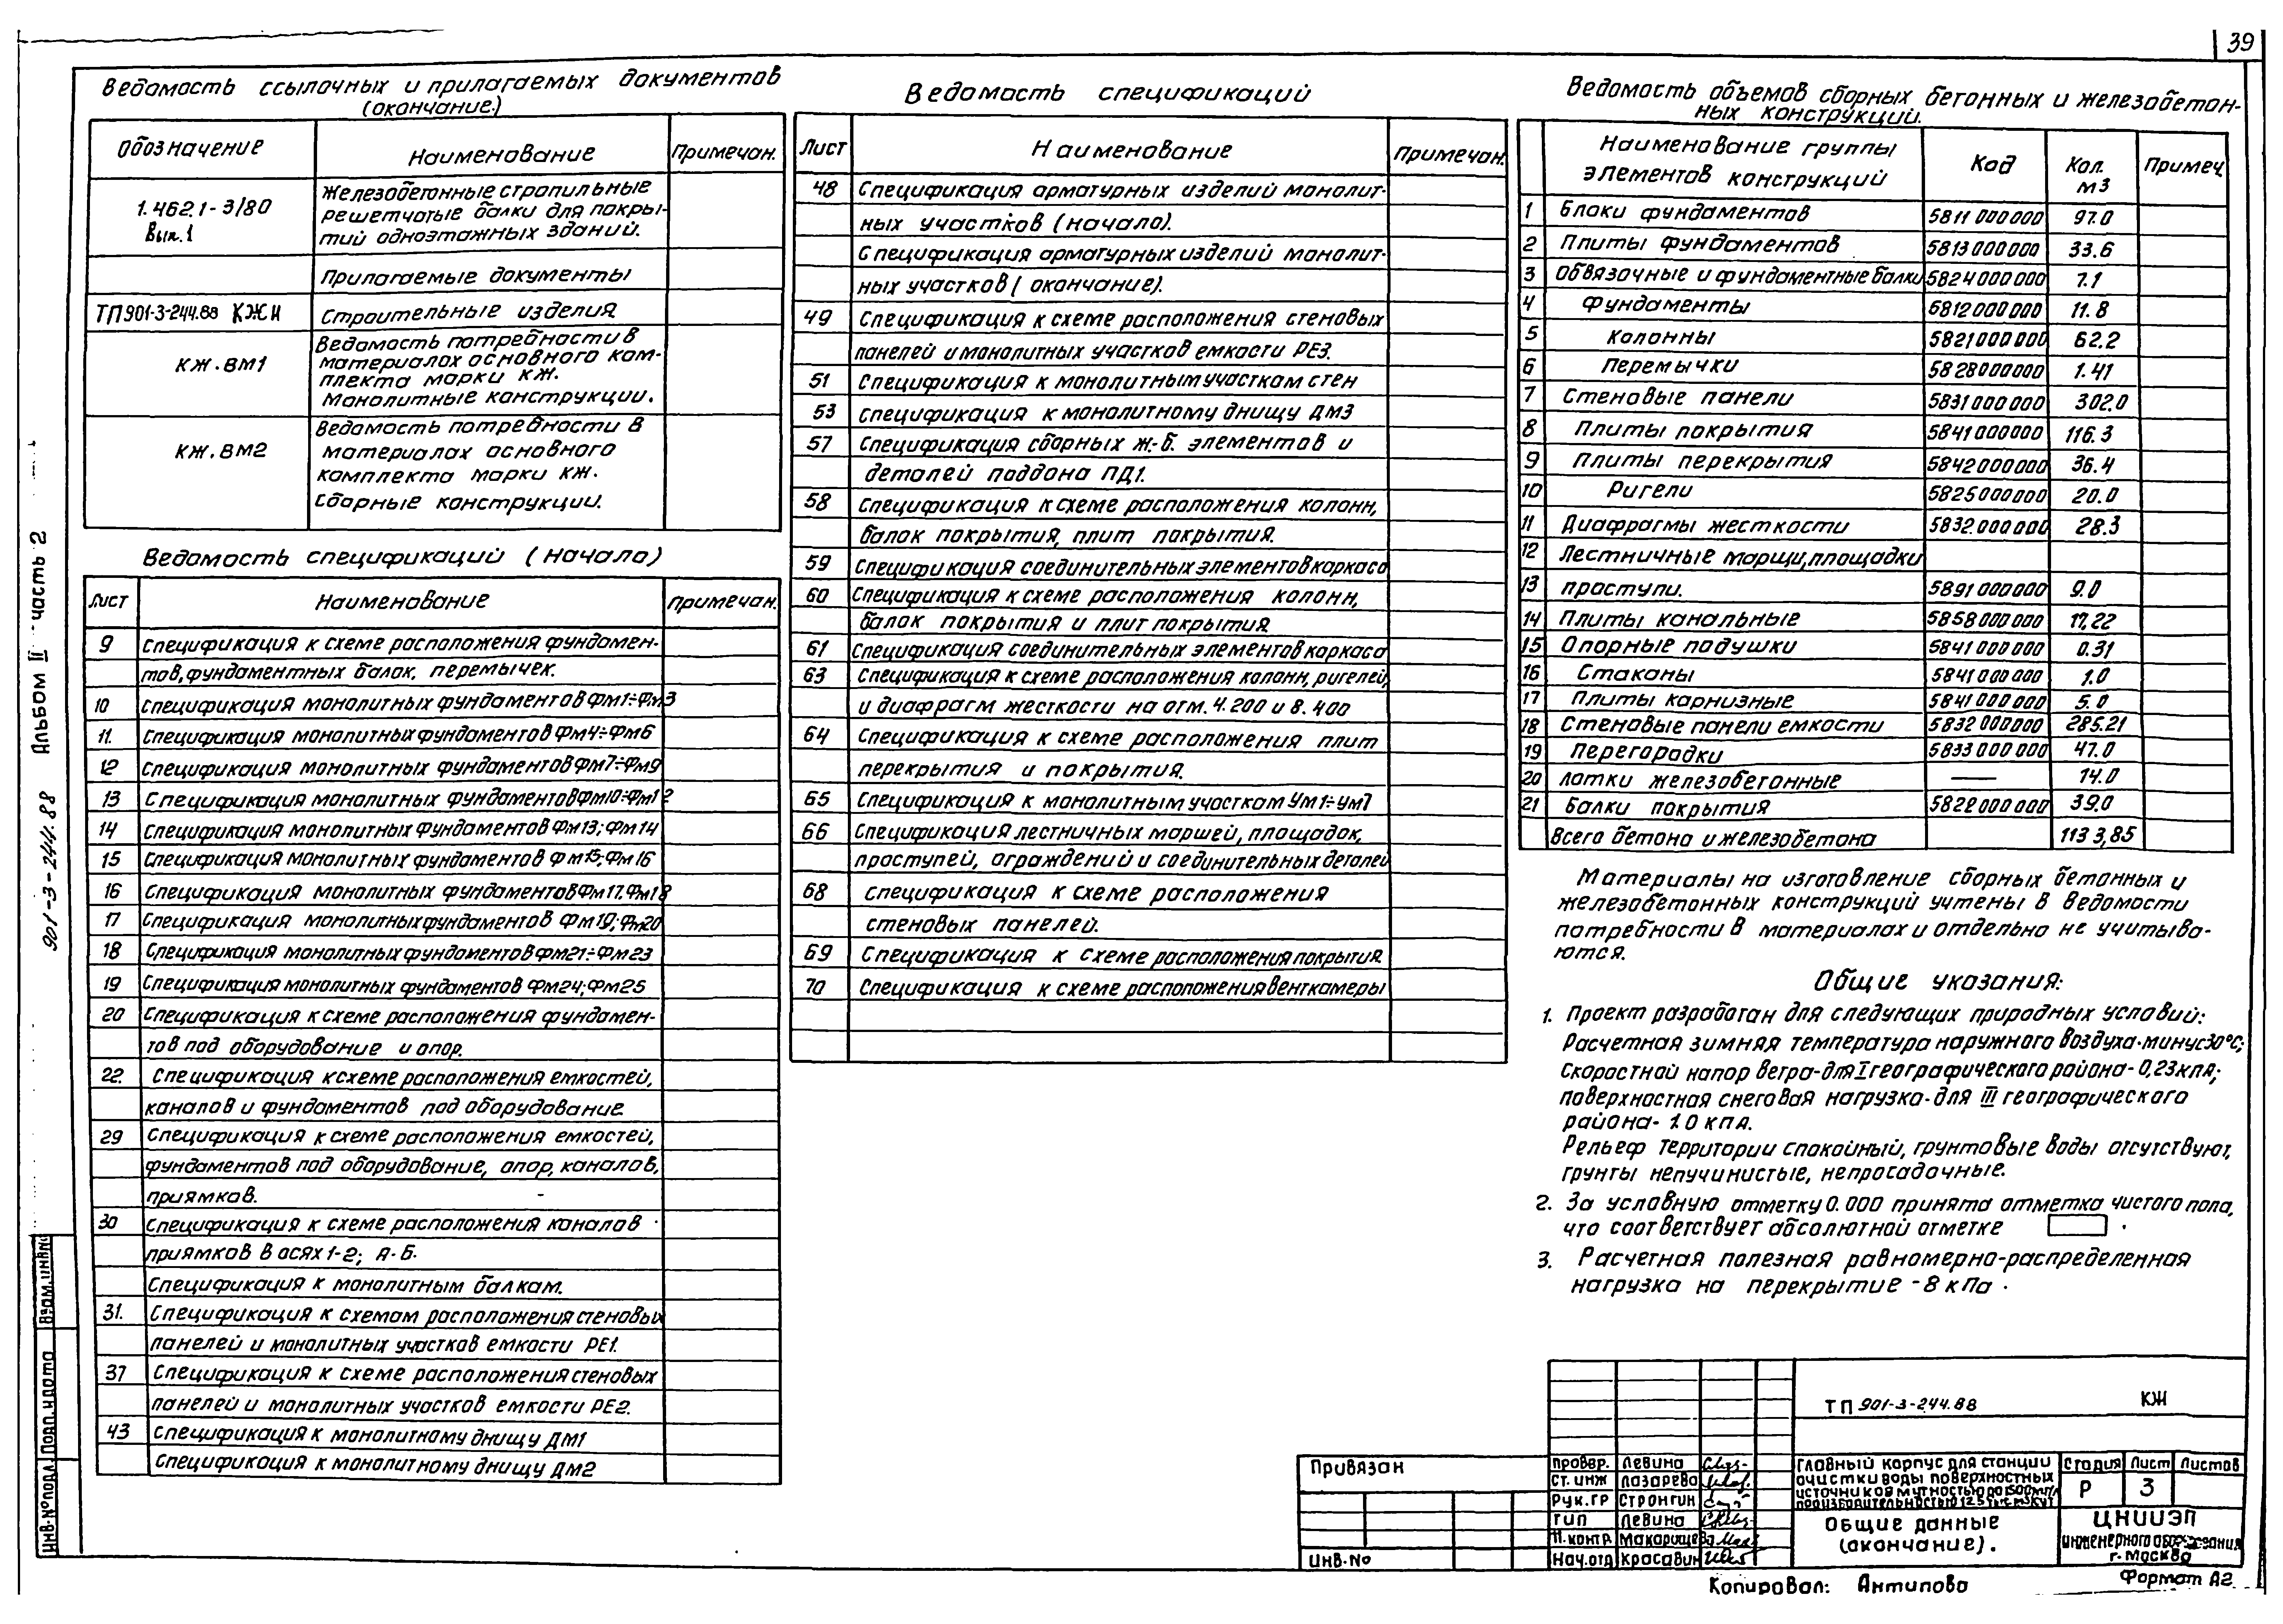 39
Ведомость ссылочных и прилагаемых документов
(окончание.)
Обозначение Наименование Примечан.
1.462.1-3/80 Железобетонные стропильные
Вып.1 решетчатые балки для покры-
тий одноэтажных зданий.
Прилагаемые документы
ТП901-3-244.88 КЖИ Строительные изделия
КЖ.ВМ1 Ведомость потребности в
материалах основного ком-
плекта марки КЖ.
Монолитные конструкции.
КЖ.ВМ2 Ведомость потребности в
материалах основного
комплекта марки КЖ.
Сборные конструкции.
Ведомость спецификаций (начало)
Лист Наименование Примечан.
9 Спецификация к схеме расположения фундамен-
тов, фундаментных балок, перемычек.
10 Спецификация монолитных фундаментов Фм1÷Фм3
11. Спецификация монолитных фундаментов Фм4÷Фм6
12 Спецификация монолитных фундаментов Фм7÷Фм9
13 Спецификация монолитных фундаментов Фм10÷Фм12
14 Спецификация монолитных фундаментов Фм13; Фм14
15 Спецификация монолитных фундаментов Фм15; Фм16
16 Спецификация монолитных фундаментов Фм17, Фм18
17 Спецификация монолитных фундаментов Фм19; Фм20
18 Спецификация монолитных фундаментов Фм21÷Фм23
19 Спецификация монолитных фундаментов Фм24; Фм25
20 Спецификация к схеме расположения фундамен-
тов под оборудование и опор.
22. Спецификация к схеме расположения емкостей,
каналов и фундаментов под оборудование
29 Спецификация к схеме расположения емкостей,
фундаментов под оборудование, опор, каналов,
приямков.
30 Спецификация к схеме расположения каналов
приямков в осях 1-2; А-Б.
Спецификация к монолитным балкам.
31. Спецификация к схемам расположения стеновых
панелей и монолитных участков емкости РЕ1.
37 Спецификация к схеме расположения стеновых
панелей и монолитных участков емкости РЕ2.
43 Спецификация к монолитному днищу ДМ1
Спецификация к монолитному днищу ДМ2
Ведомость спецификаций
Лист Наименование Примечан.
48 Спецификация арматурных изделий монолит-
ных участков (начало).
Спецификация арматурных изделий монолит-
ных участков (окончание).
49 Спецификация к схеме расположения стеновых
панелей и монолитных участков емкости РЕ3.
51 Спецификация к монолитным участкам стен
53 Спецификация к монолитному днищу ДМ3
57 Спецификация сборных ж.-б. элементов и
деталей поддона ПД1.
58 Спецификация к схеме расположения колонн,
балок покрытия, плит покрытия.
59 Спецификация соединительных элементов каркаса
60 Спецификация к схеме расположения колонн,
балок покрытия и плит покрытия
61 Спецификация соединительных элементов каркаса
63 Спецификация к схеме расположения колонн, ригелей,
и диафрагм жесткости на отм. 4.200 и 8.400
64 Спецификация к схеме расположения плит
перекрытия и покрытия.
65 Спецификация к монолитным участкам Ум1÷Ум7
66 Спецификация лестничных маршей, площадок,
проступей, ограждений и соединительных деталей
68 Спецификация к схеме расположения
стеновых панелей.
69 Спецификация к схеме расположения покрытия
70 Спецификация к схеме расположения венткамеры
Ведомость объемов сборных бетонных и железобетон-
ных конструкций.
Наименование группы элементов конструкций Код Кол. м3 Примеч.
1 Блоки фундаментов 5811000000 97.0
2 Плиты фундаментов 5813000000 33.6
3 Обвязочные и фундаментные балки 5824000000 7.1
4 Фундаменты 5812000000 11.8
5 Колонны 5821000000 62.2
6 Перемычки 5828000000 1.41
7 Стеновые панели 5831000000 302.0
8 Плиты покрытия 5841000000 116.3
9 Плиты перекрытия 5842000000 36.4
10 Ригели 5825000000 20.0
11 Диафрагмы жесткости 5832000000 28.3
12 Лестничные марши, площадки
13 проступи. 5891000000 9.0
14 Плиты канальные 5858000000 17,22
15 Опорные подушки 5841000000 0.31
16 Стаканы 5841000000 1.0
17 Плиты карнизные 5841000000 5.0
18 Стеновые панели емкости 5832000000 285.21
19 Перегородки 5833000000 47.0
20 Лотки железобетонные — 14.0
21 Балки покрытия 5822000000 39.0
Всего бетона и железобетона 1133,85
Материалы на изготовление сборных бетонных и
железобетонных конструкций учтены в ведомости
потребности в материалах и отдельно не учитыва-
ются.
Общие указания:
1. Проект разработан для следующих природных условий:
Расчетная зимняя температура наружного воздуха-минус30°С;
скоростной напор ветра-для I географического района-0,23кПа;
поверхностная снеговая нагрузка-для III географического
района- 1.0 кПа.
Рельеф территории спокойный, грунтовые воды отсутствуют,
грунты непучинистые, непросадочные.
2. За условную отметку 0.000 принята отметка чистого пола,
что соответствует абсолютной отметке .
3. Расчетная полезная равномерно-распределенная
нагрузка на перекрытие -8 кПа.
Альбом II часть 2
901-3-244.88
Взам.инв№
Подп.и дата
Инв.№подл.
Привязан
Инв.№
Провер. Левина
Ст.инж Лазарева
Рук.гр Стронгин
ГИП Левина
Н.контр. Макарощева
Нач.отд Красавин
ТП 901-3-244.88 КЖ
Главный корпус для станции
очистки воды поверхностных
источников мутностью до 1500мг/л
производительностью 12.5 тыс.м3/сут
Стадия Лист Листов
Р 3
Общие данные
(окончание).
ЦНИИЭП
инженерного оборудования
г.Москва
Копировал: Антипова
Формат А2